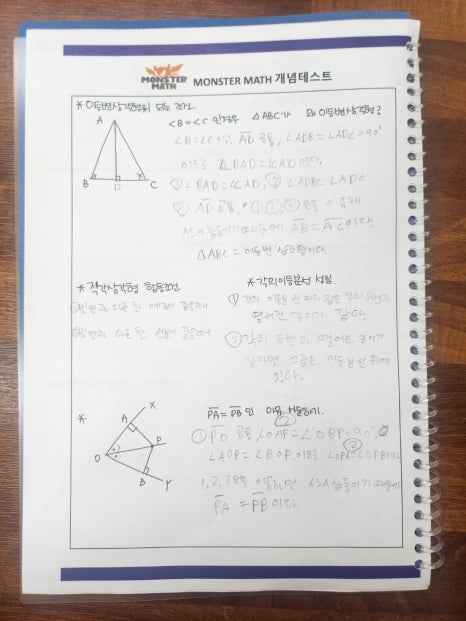 MONSTER MATH
MONSTER MATH 개념테스트
* 이등변삼각형이 되는 조건.
∠B=∠C 인경우 △ABC가 왜 이등변삼각형?
A
B
D
C
∠B=∠C 이고, AD 공통, ∠ADB=∠ADC=90°
이므로 ∠BAD=∠CAD이다.
① ∠BAD=∠CAD, ② ∠ADB=∠ADC
③ AD 공통, ①②③ 을 이용해
ASA합동이기 때문에 AB=AC이다.
△ABC = 이등변 삼각형이다.
* 직각삼각형 합동조건
① 빗변과 다른 한 예각이 같을때
② 빗변과 다른 한 선분이 같을때
* 각의이등분선 성질.
① 각의 이등분선 위의 점은 각의 두변으로
떨어진 길이가 같다.
② 각의 두변으로 떨어진 길이가
같다면 그점은 이등분선 위에
있다.
*
X
A
P
O
B
Y
PA=PB 인 이유 서술하기.
① PO 공통, ∠OAP=∠OBP=90°, ②
∠AOP=∠BOP 이므로 ∠OPA=∠OPB이다.
1,2,3 을 이용하면 ASA합동이기 때문에
PA=PB이다.